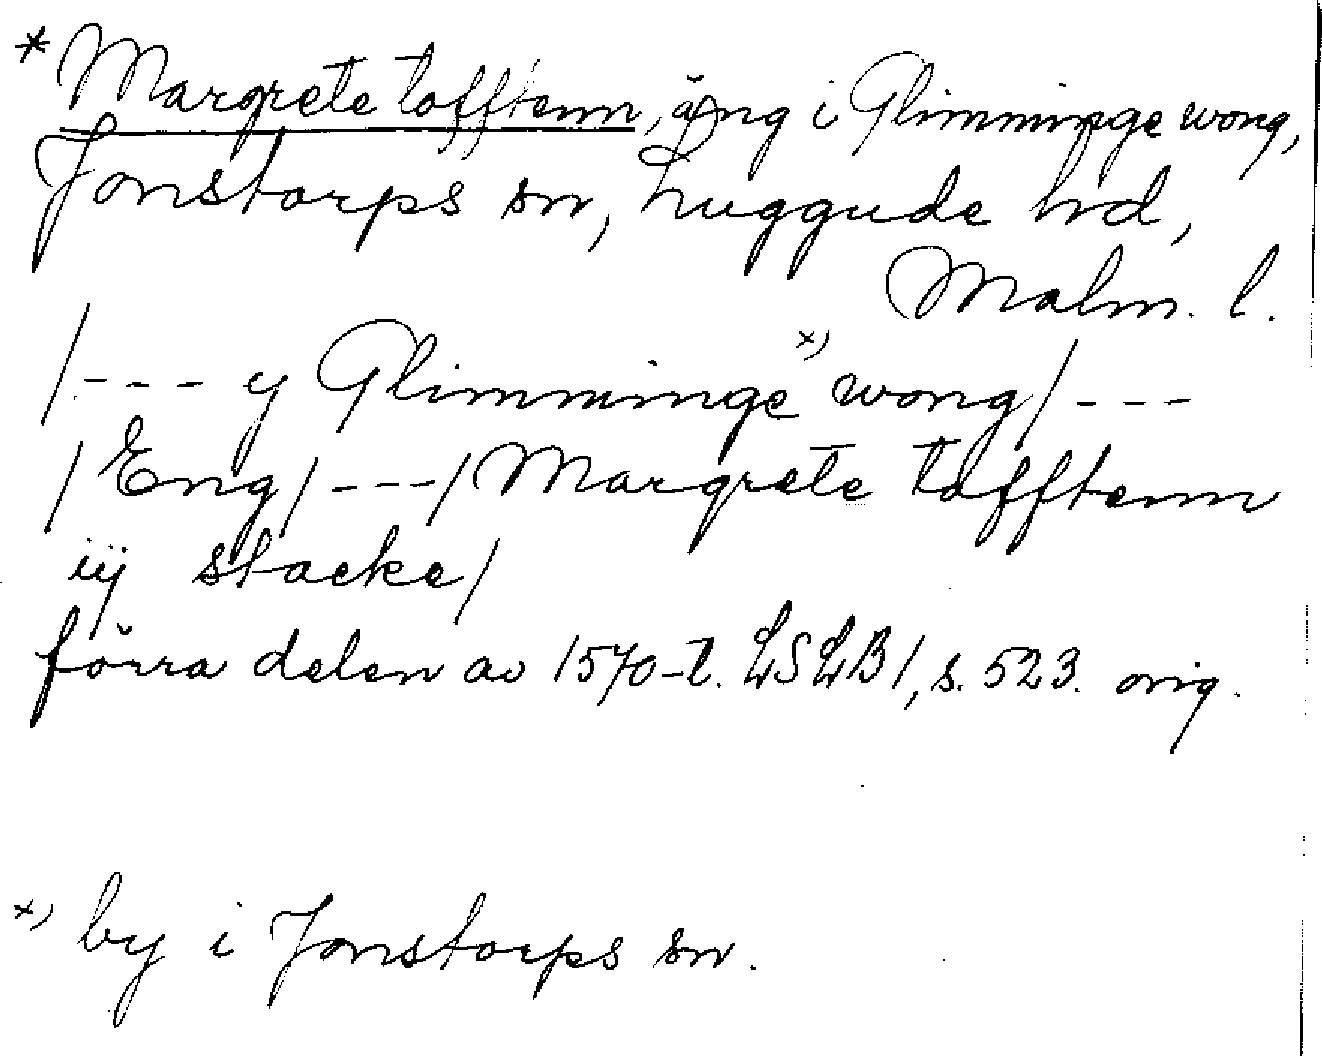 * Margrete tofftenn, äng i Glimminge wong,
Jonstorps sn, Luggude hd,
Malm. l.
/--- y Glimminge x) wong/---
/Eng/---/Margrete tofftenn
iij stacke/
förra delen av 1570-t. LSLB1, s. 523. orig.
x) by i Jonstorps sn.